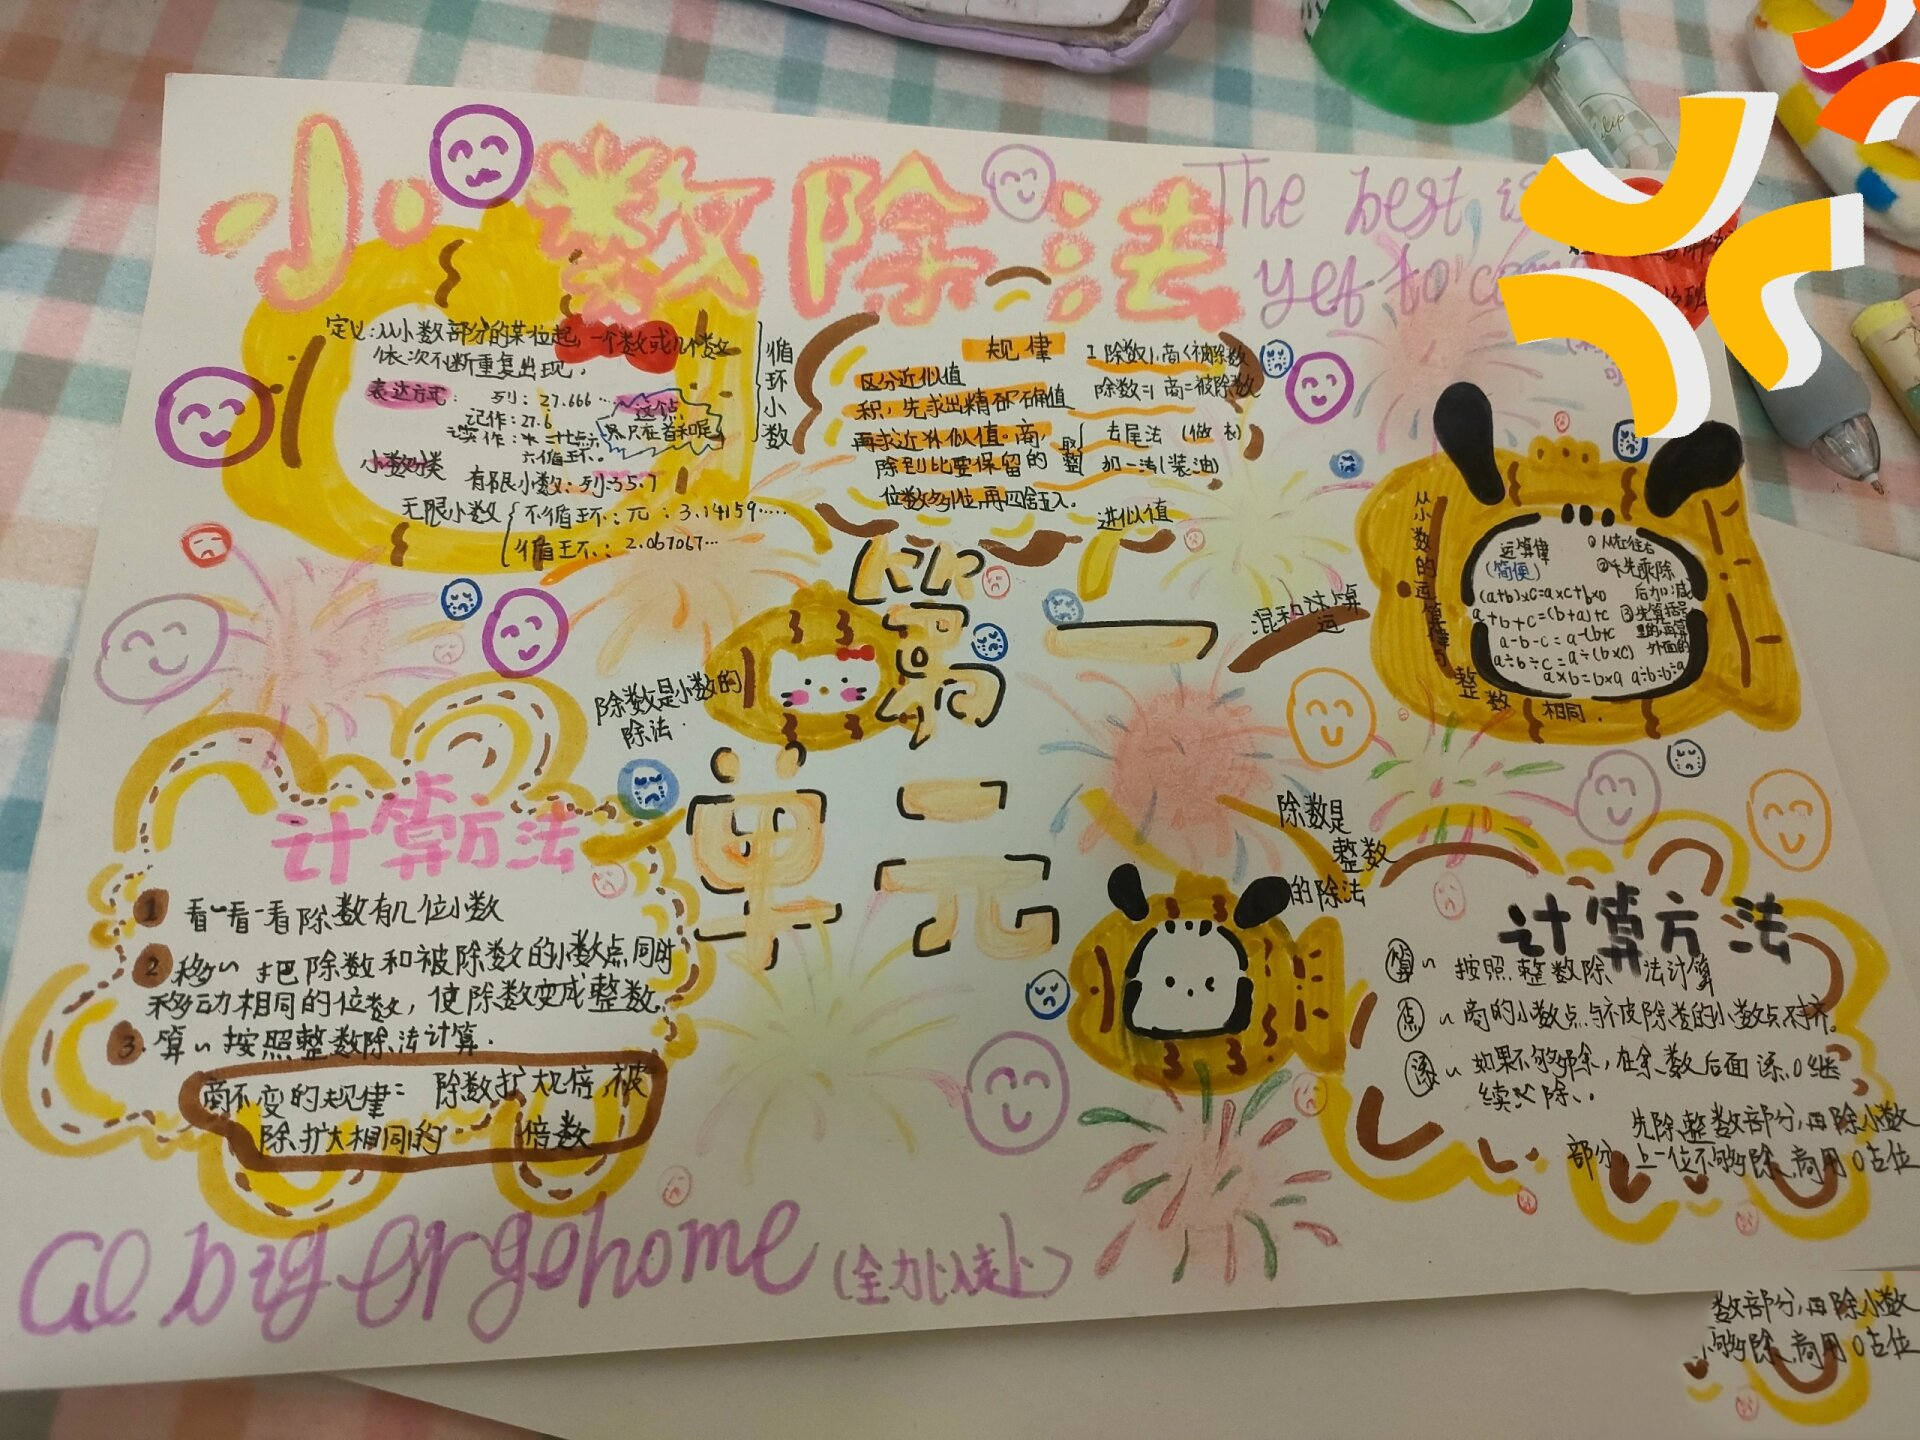 小数除法
The best is
yet to co
定义:从小数部分的某位起,一个数或几个数
依次不断重复出现.
表达方式: 列: 27.666...
记作: 27.6
六循环.
小数分类
有限小数: 列:35.7
无限小数 不循环: 3.14159.....
循环: 2.067067...
循环小数
规律
1 除数1,商<被除数
除数=1 商=被除数
区分近似值
积,先求出精确值
再求近似值。商,
除到比要保留的
位数多1位,再四舍五入.
取整
去尾法 (做衣)
加一法(装油)
进似值
第一单元
混和运算
从小数的运算律与整数相同.
运算律
(简便)
(a+b)×c=a×c+b×c
a+b+c=(b+a)+c
a-b-c=a-(b+c
a÷b÷c=a÷(b×c)
a×b=b×a
①从左往右
②先乘除
后加减
③先算括号
里的,再算
外面的
除数是小数的
除法.
计算方法
1 看~看一看除数有几位小数
2 移~ 把除数和被除数的小数点同时
移动相同的位数,使除数变成整数.
3. 算~按照整数除法计算.
商不变的规律: 除数扩大几倍,被
除扩大相同的 倍数
除数是
整数
的除法
计算方法
算~ 按照整数除法计算
点~商的小数点与被除数的小数点对齐.
添~如果不够除,在余数后面添0继
续除..
先除整数部分,再除小数
部分,上一位不够除,商用0占位
Go big or go home (全力以赴)
数部分,再除小数
不够除,商用0占位